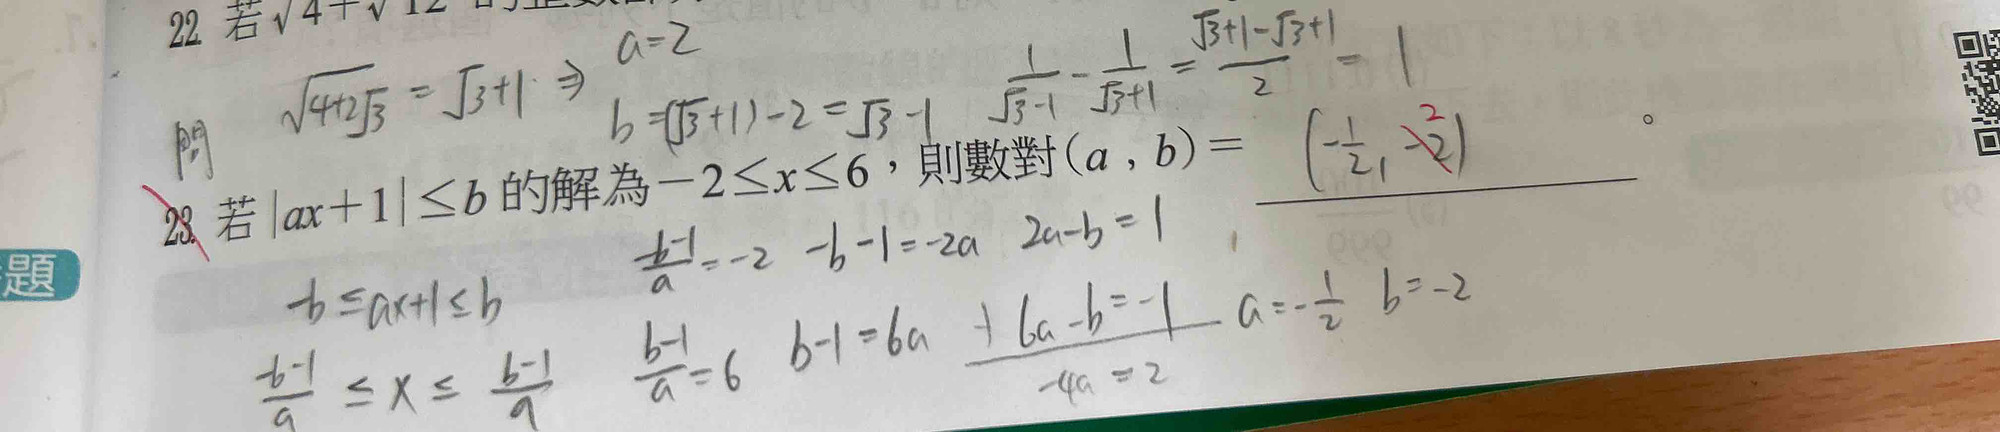 22. 若√4+√12
a=2
√4+2√3 = √3+1 ⇒
b=(√3+1)-2=√3-1
1/(√3-1) - 1/(√3+1) = (√3+1-√3+1)/2 = 1
問
23. 若|ax+1|≤b的解為-2≤x≤6，則數對(a，b)= (-1/2, -2) 2 。
-b≤ax+1≤b
(-b-1)/a ≤ x ≤ (b-1)/a
(-b-1)/a = -2 -b-1=-2a 2a-b=1
(b-1)/a = 6 b-1=6a + 6a-b=-1
-4a=2
a=-1/2 b=-2
題
99